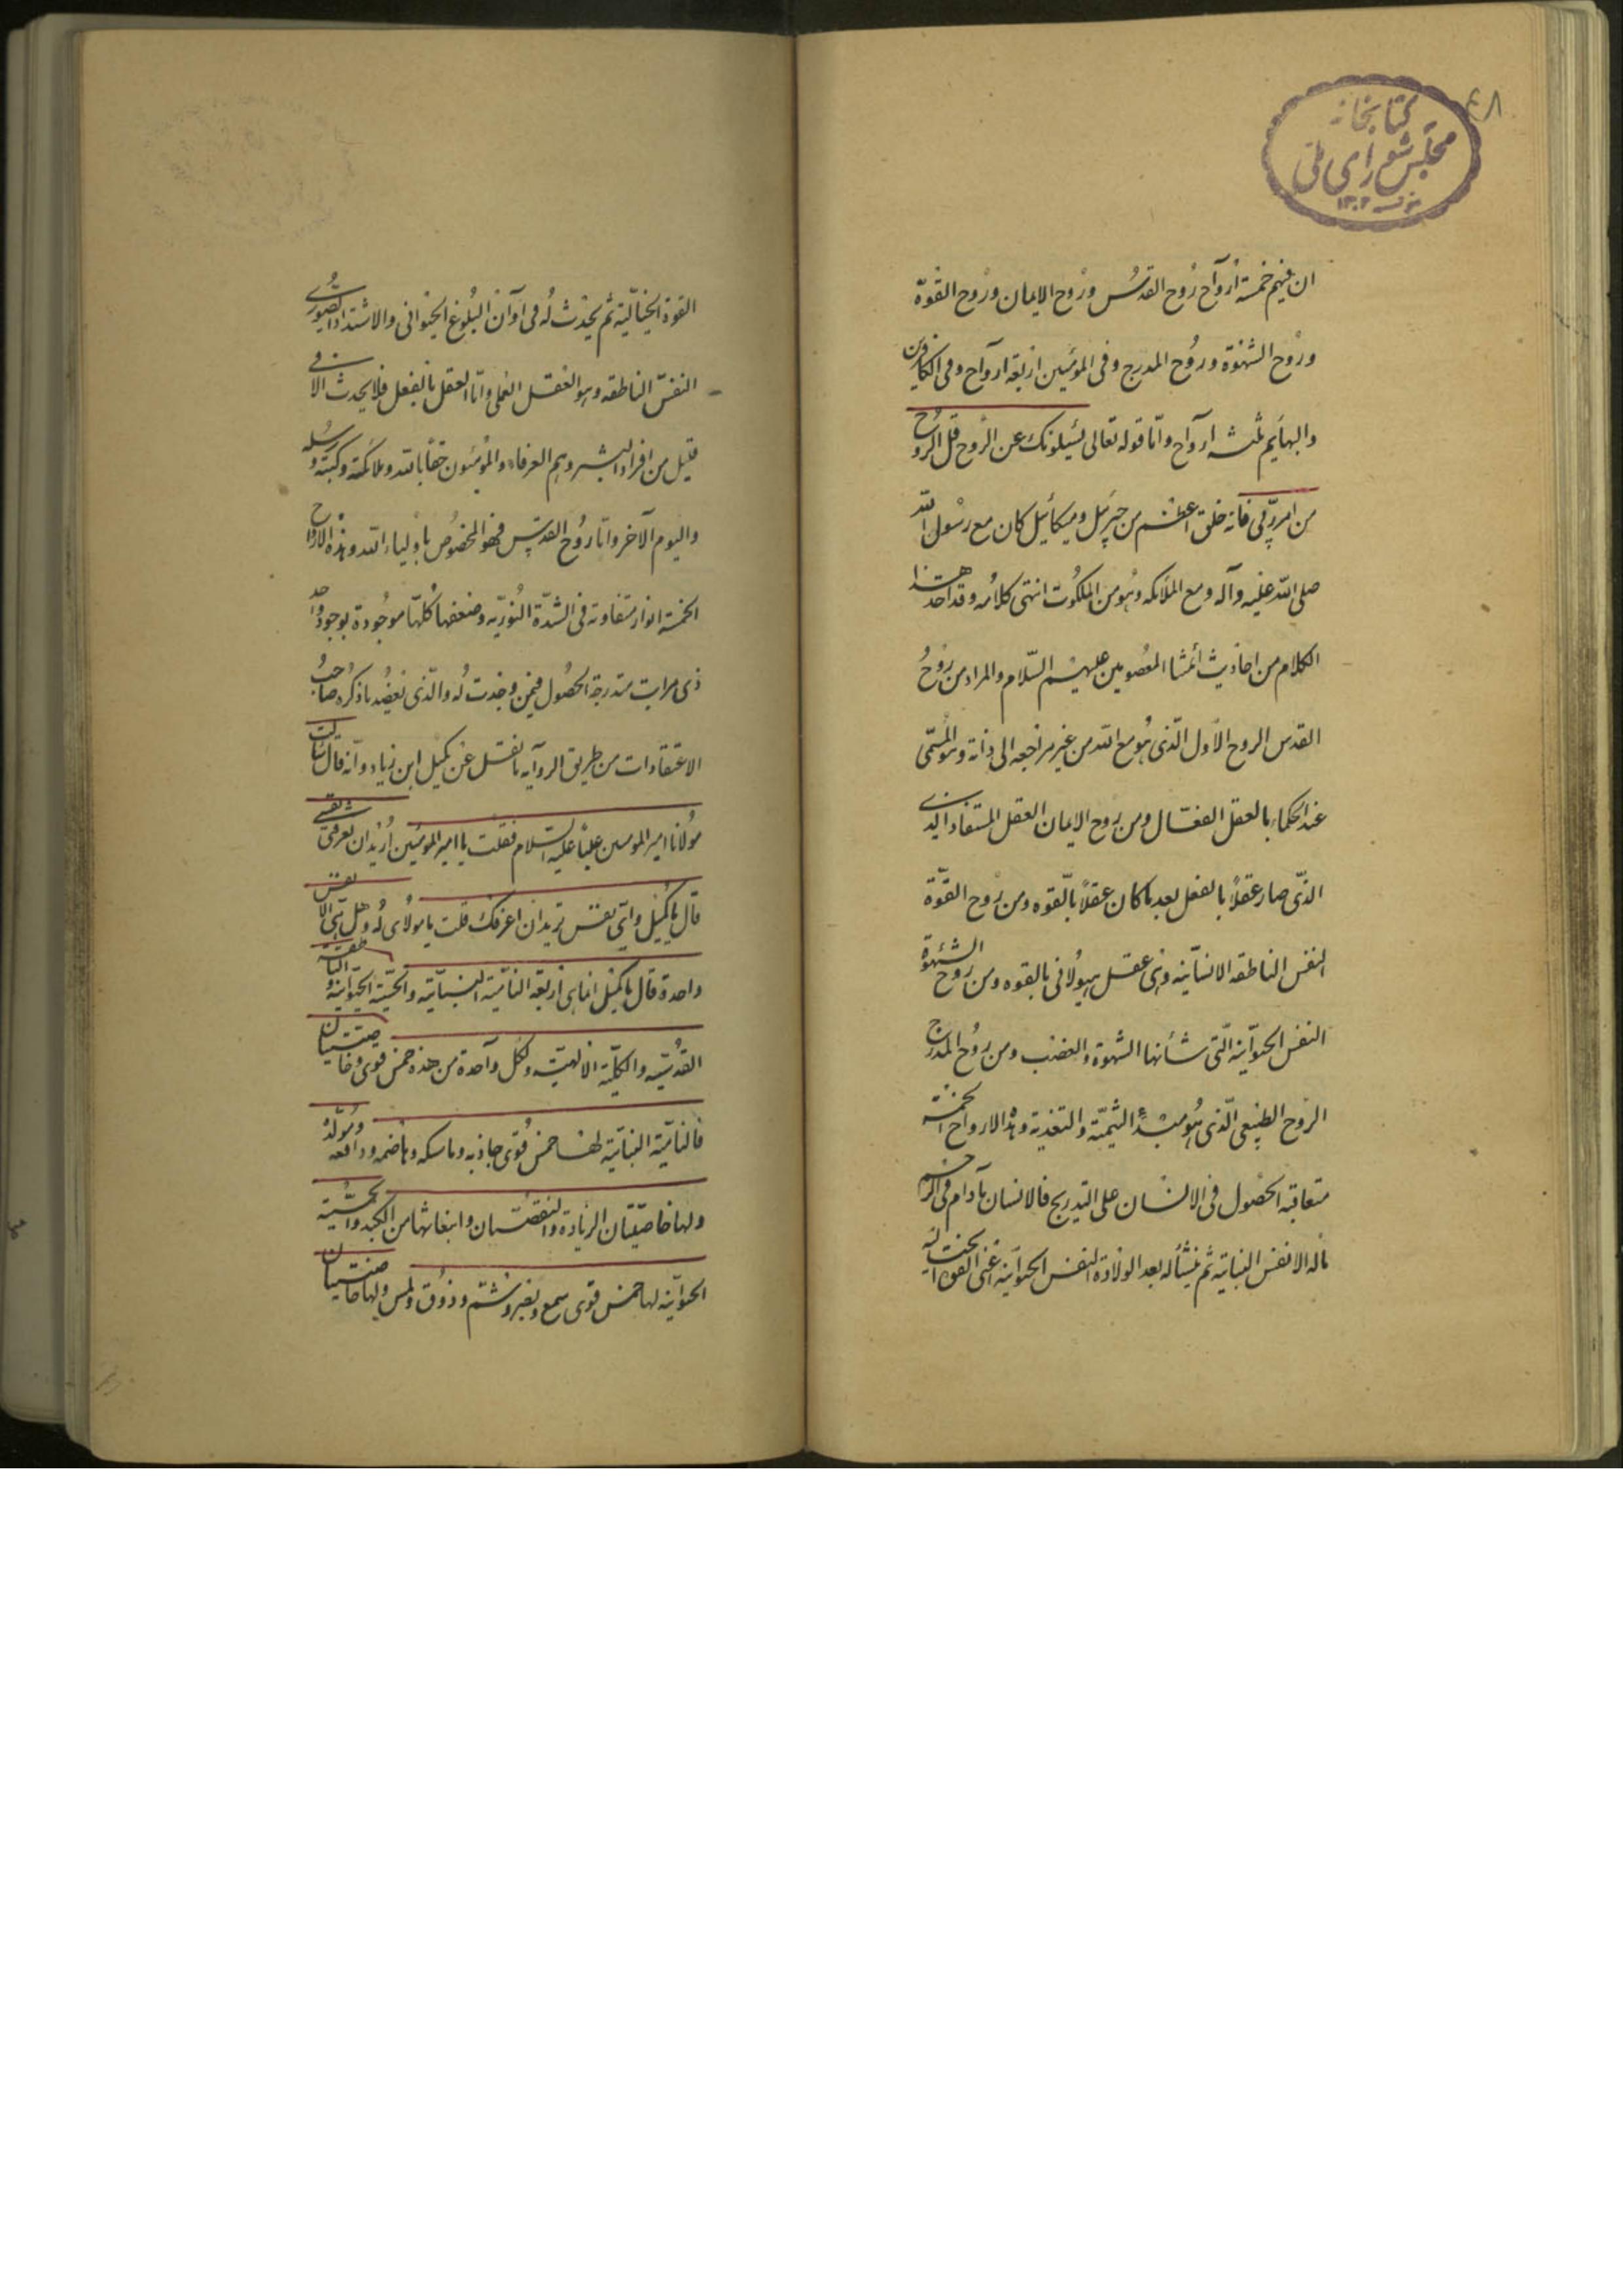 ٤٨
كتابخانه
مجلس شورای ملی
١٣٠٢
ان فيهم خمسة أرواح رُوح القدُس ورُوح الايمان ورُوح القوّة
ورُوح الشهْوة ورُوح المدرج وفى المؤمنين اربعة ارواح وفى الكافرين
والبهايم ثلثه ارواح وامّا قوله تعالى يسئلونك عن الرّوح قل الروح
من امر ربّى فانه خلق اعظم من جبرئيل وميكائيل كان مع رسُول الله
صلى الله عليه وآله ومع الملائكه وهُو من الملكُوت انتهى كلامُه وقد اخذ هذا
الكلام من احاديث ائمتنا المعصُومين عليهم السّلام والمراد من رُوحُ
القدس الروح الاول الّذى هُو مع الله من غير مراجعه الى ذاته وهو المُسمّى
عند الحكماء بالعقل الفعّال ومن رُوح الايمان العقل المستفاد الذى
الذى صار عقلاً بالفعل بعد ما كان عقلاً بالقوه ومن رُوح القوّة
النفس الناطقه الانسانيه وهى عقل هيُولانى بالقوه ومن رُوح الشهوة
النفس الحيوانيه الّتى شأنها الشهوة والغضب ومن رُوح المدرج
الرّوح الطبيعى الّذى هُو مبدأ التنمية والتغذية وهذه الارواح الخمسة
متعاقبة الحصُول فى الانسان على التدريج فالانسان ما دام فى الرّحم
ماله الا نفس النباتيه ثم ينشأ له بعد الولادة النفس الحيوانيه اعنى القوة الخياليه
القوة الخياليّة ثم يحدث لُه فى اوان البُلوغ الحيوانى والاشتداد الصّورى
النفس الناطقه وهو العقل العملى وامّا العقل بالفعل فلا يحدث الا فى
قليل من افراد البشر وهم العرفاء والمؤمنون حقاً بالله وملائكته وكتبه ورسُله
واليوم الآخر وامّا رُوح القدس فهو المخصُوص باولياء الله وهذه الارواح
الخمسة انوار متفاوته فى الشدّة النُوريّه وضعفها كُلّها موجُودة بوجود واحد
ذى مراتب متدرجة الحصُول فيمن وجدت لُه والّذى يعضُد ما ذكره صاحبُ
الاعتقادات من طريق الروايه ما نقل عن كميل ابن زياد وانّه قال سألت
مولانا امير المومنين عليّاً عليه السلام فقلت يا امير المؤمنين اُريد ان تعرفنى نفسى
قال يا كُميل واىّ نفس تريد ان اعرفك قلت يا مولاى لُه وهل هى الا نفس
واحدة قال يا كميل انما هى اربعة النامية النباتيّه والحسّية الحيوانيّه والناطقة
القدسيّه والكلّية الالهيّه ولكل واحدة من هذه خمس قوى وخاصيتان
فالناميّة النباتيّه لها خمس قُوى جاذبه وماسكه وهاضمه ودافعه ومُولّدة
ولها خاصيّتان الزيادة والنقصان وانبعاثها من الكبد والحسّية
الحيوانيّه لها خمس قوى سمع وبصر وشم وذوق ولمس ولها خاصيتان